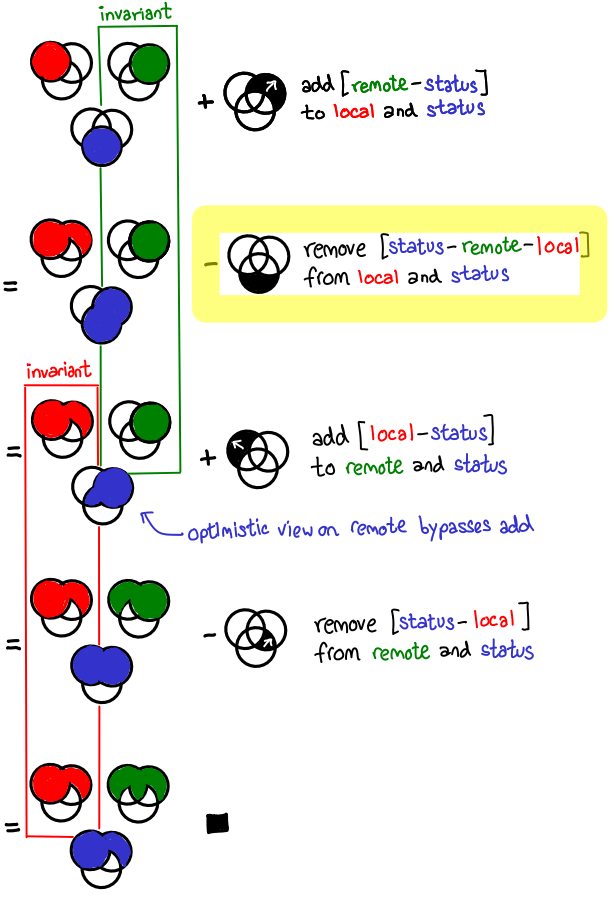 invariant
+ add [remote-status]
to local and status
= - remove [status-remote-local]
from local and status
invariant
= + add [local-status]
to remote and status
optimistic view on remote bypasses add
= - remove [status-local]
from remote and status
=